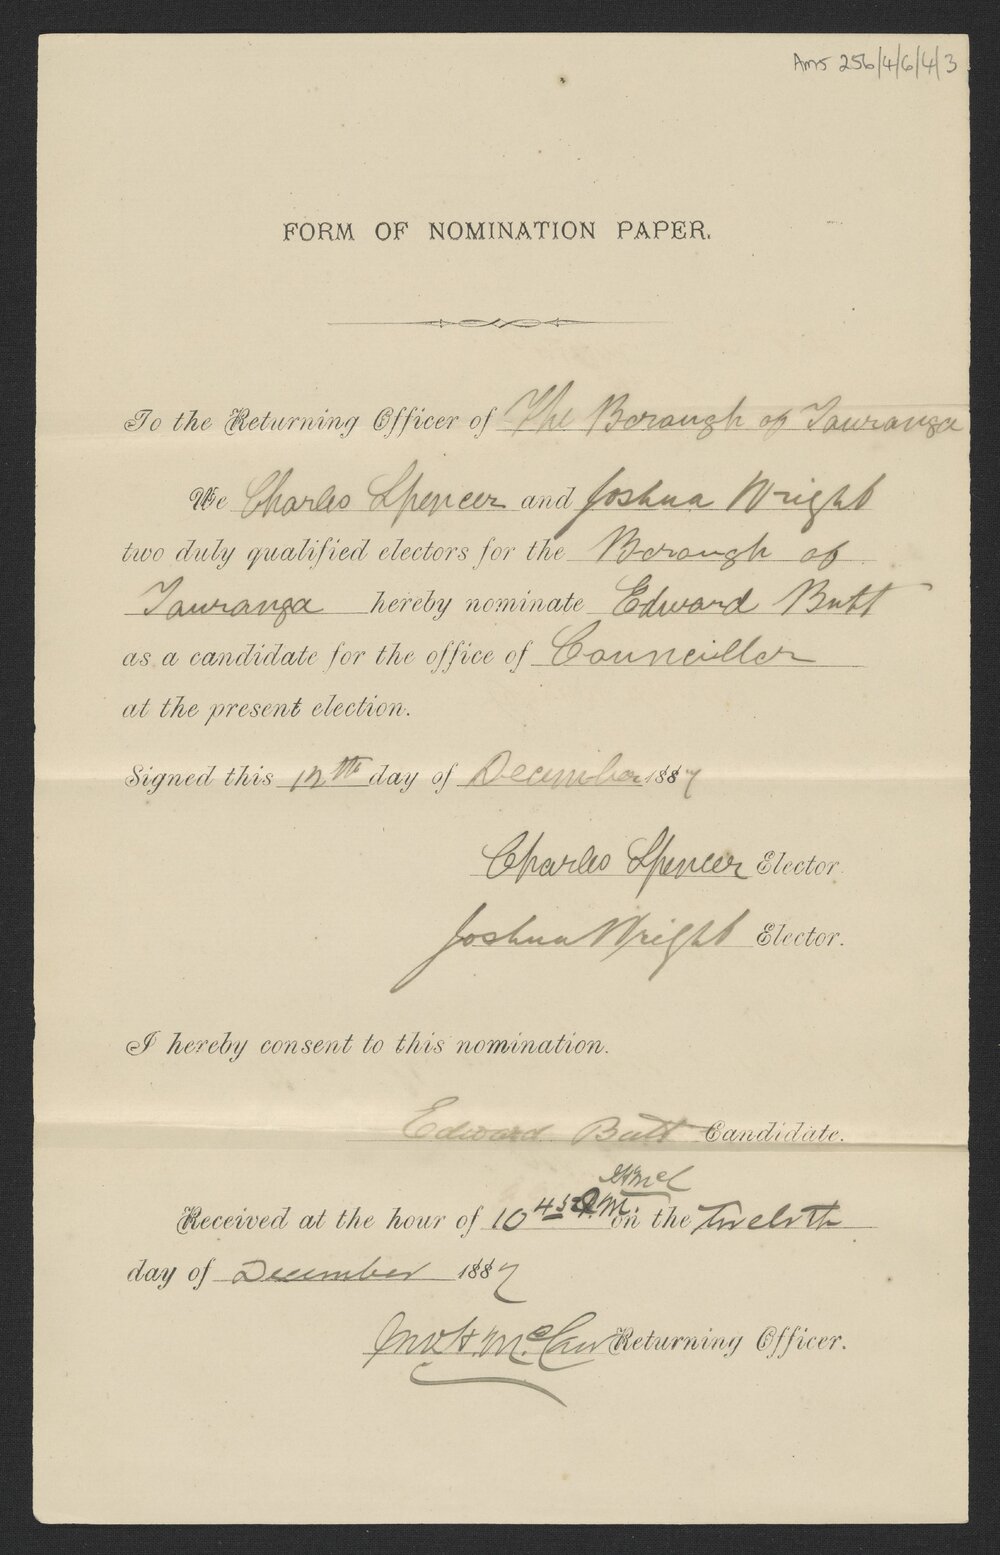 Ams 256/4/6/4/3
FORM OF NOMINATION PAPER.
To the Returning Officer of The Borough of Tauranga
We Charles Spencer and Joshua Wright
two duly qualified electors for the Borough of
Tauranga hereby nominate Edward Butt
as a candidate for the office of Councillor
at the present election.
Signed this 12th day of December 1887
Charles Spencer Elector.
Joshua Wright Elector.
I hereby consent to this nomination.
Edward Butt Candidate.
Received at the hour of 10 45 A.M. on the twelvth
day of December 1887
Jno H. McCaw Returning Officer.